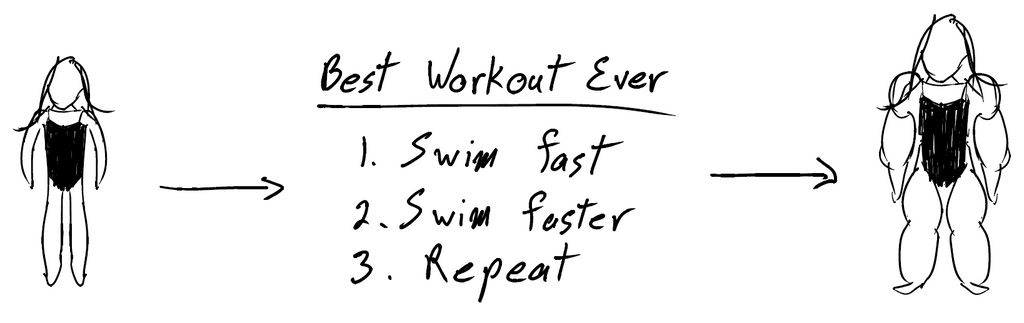 Best Workout Ever
1. Swim fast
2. Swim faster
3. Repeat